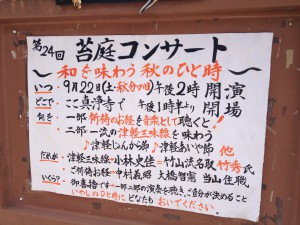 第24回 苔庭コンサート
〜和を味わう秋のひと時〜
いつ・9月22日(土・秋分の日)午後2時開演
どこで・ここ真浄寺で 午後1時半より開場
何を・一部 祈祷のお経を音楽として聴くと!
二部 一流の津軽三味線を味わう
♪津軽じょんから節 ♪津軽あいや節 他
だれが・津軽三味線=小林史佳=竹山流名取 竹秀氏
・ご祈祷お経=中村義昭 大橋智憲 当山住職
いくら?御喜捨です 一部二部の演奏を聴き、ご自分が決めること
いやしのひと時に どなたも おいでください。